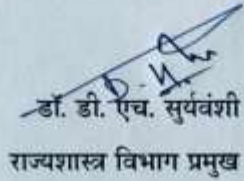 डॉ. डी. एच. सुर्यवंशी
राज्यशास्त्र विभाग प्रमुख